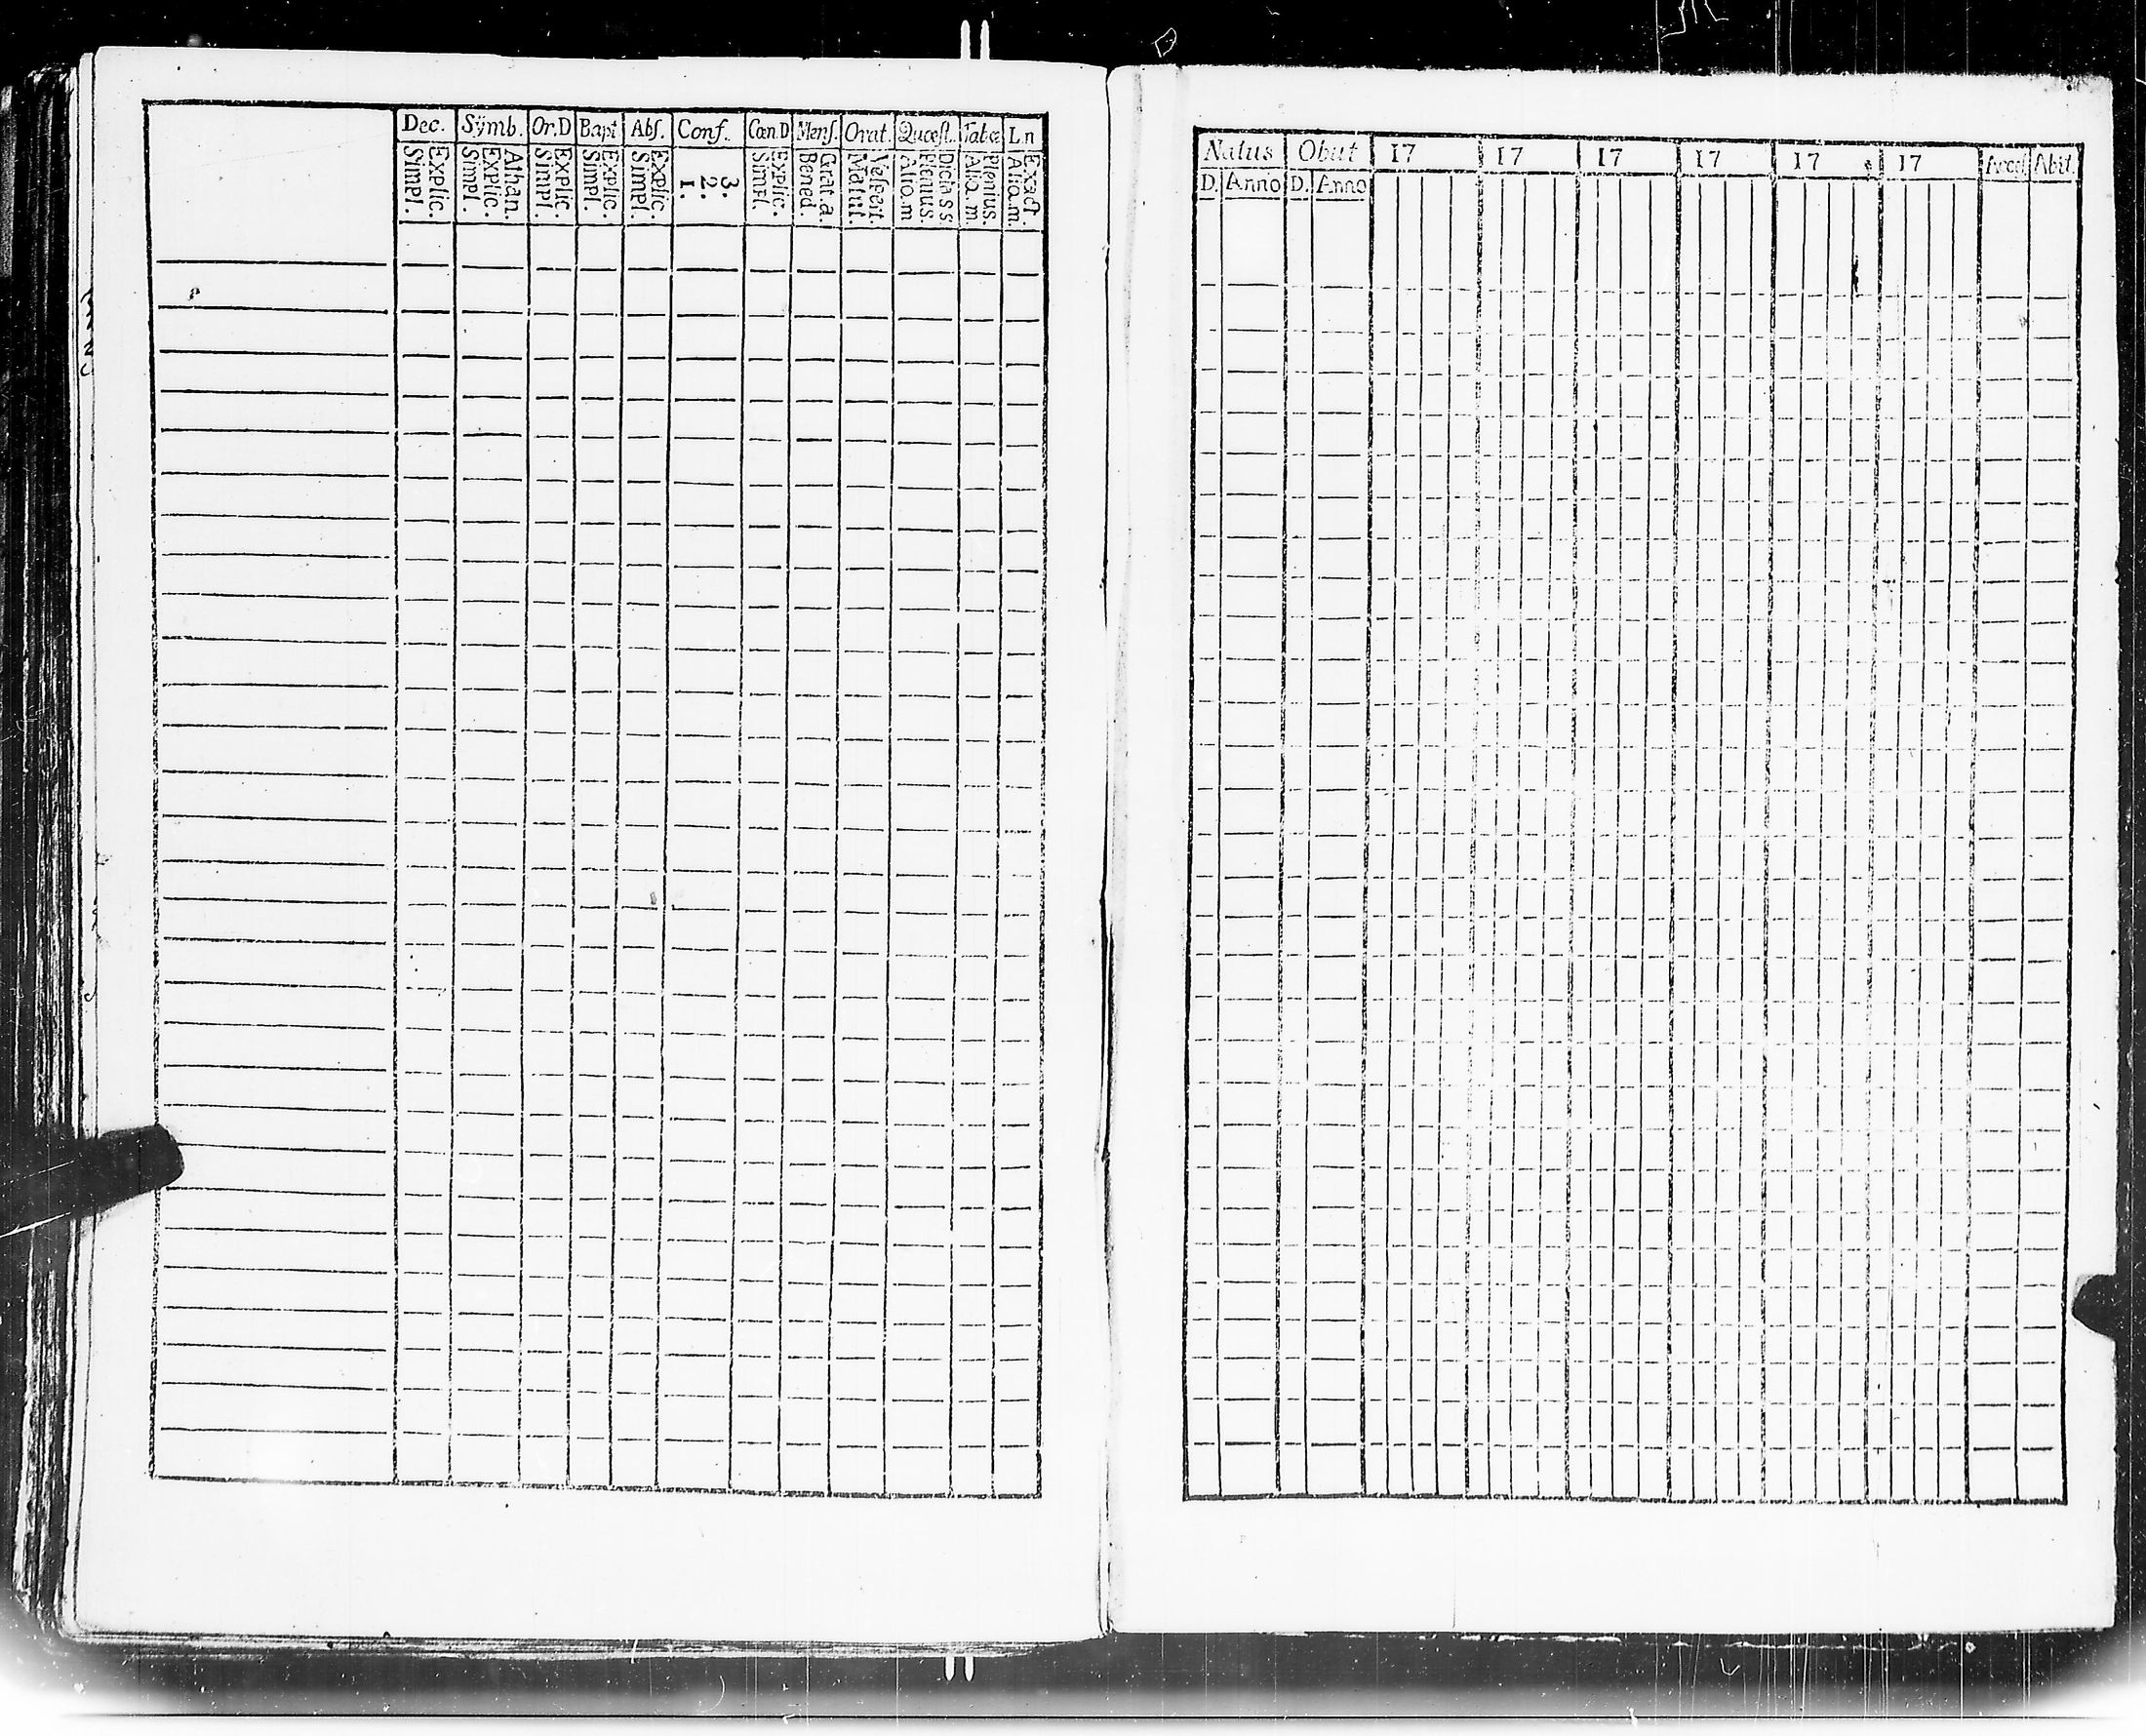 Dec. Symb. Or.D Bapt Abs. Conf. Cœn.D Mens. Orat. Quæst. Tabæ L.n
Explic. Simpl. Athan. Explic. Simpl. Explic. Simpl. Explic. Simpl. Explic. Simpl. 3. 2. 1. Explic. Simpl. Grat. a. Bened. Vesper. Matut. Dicta s s. Plenius. Aliq. m Plenius. Aliq. m. Exact. Aliq. m.
Natus Obiit 17 17 17 17 17 17 Acces Abit.
D. Anno D. Anno